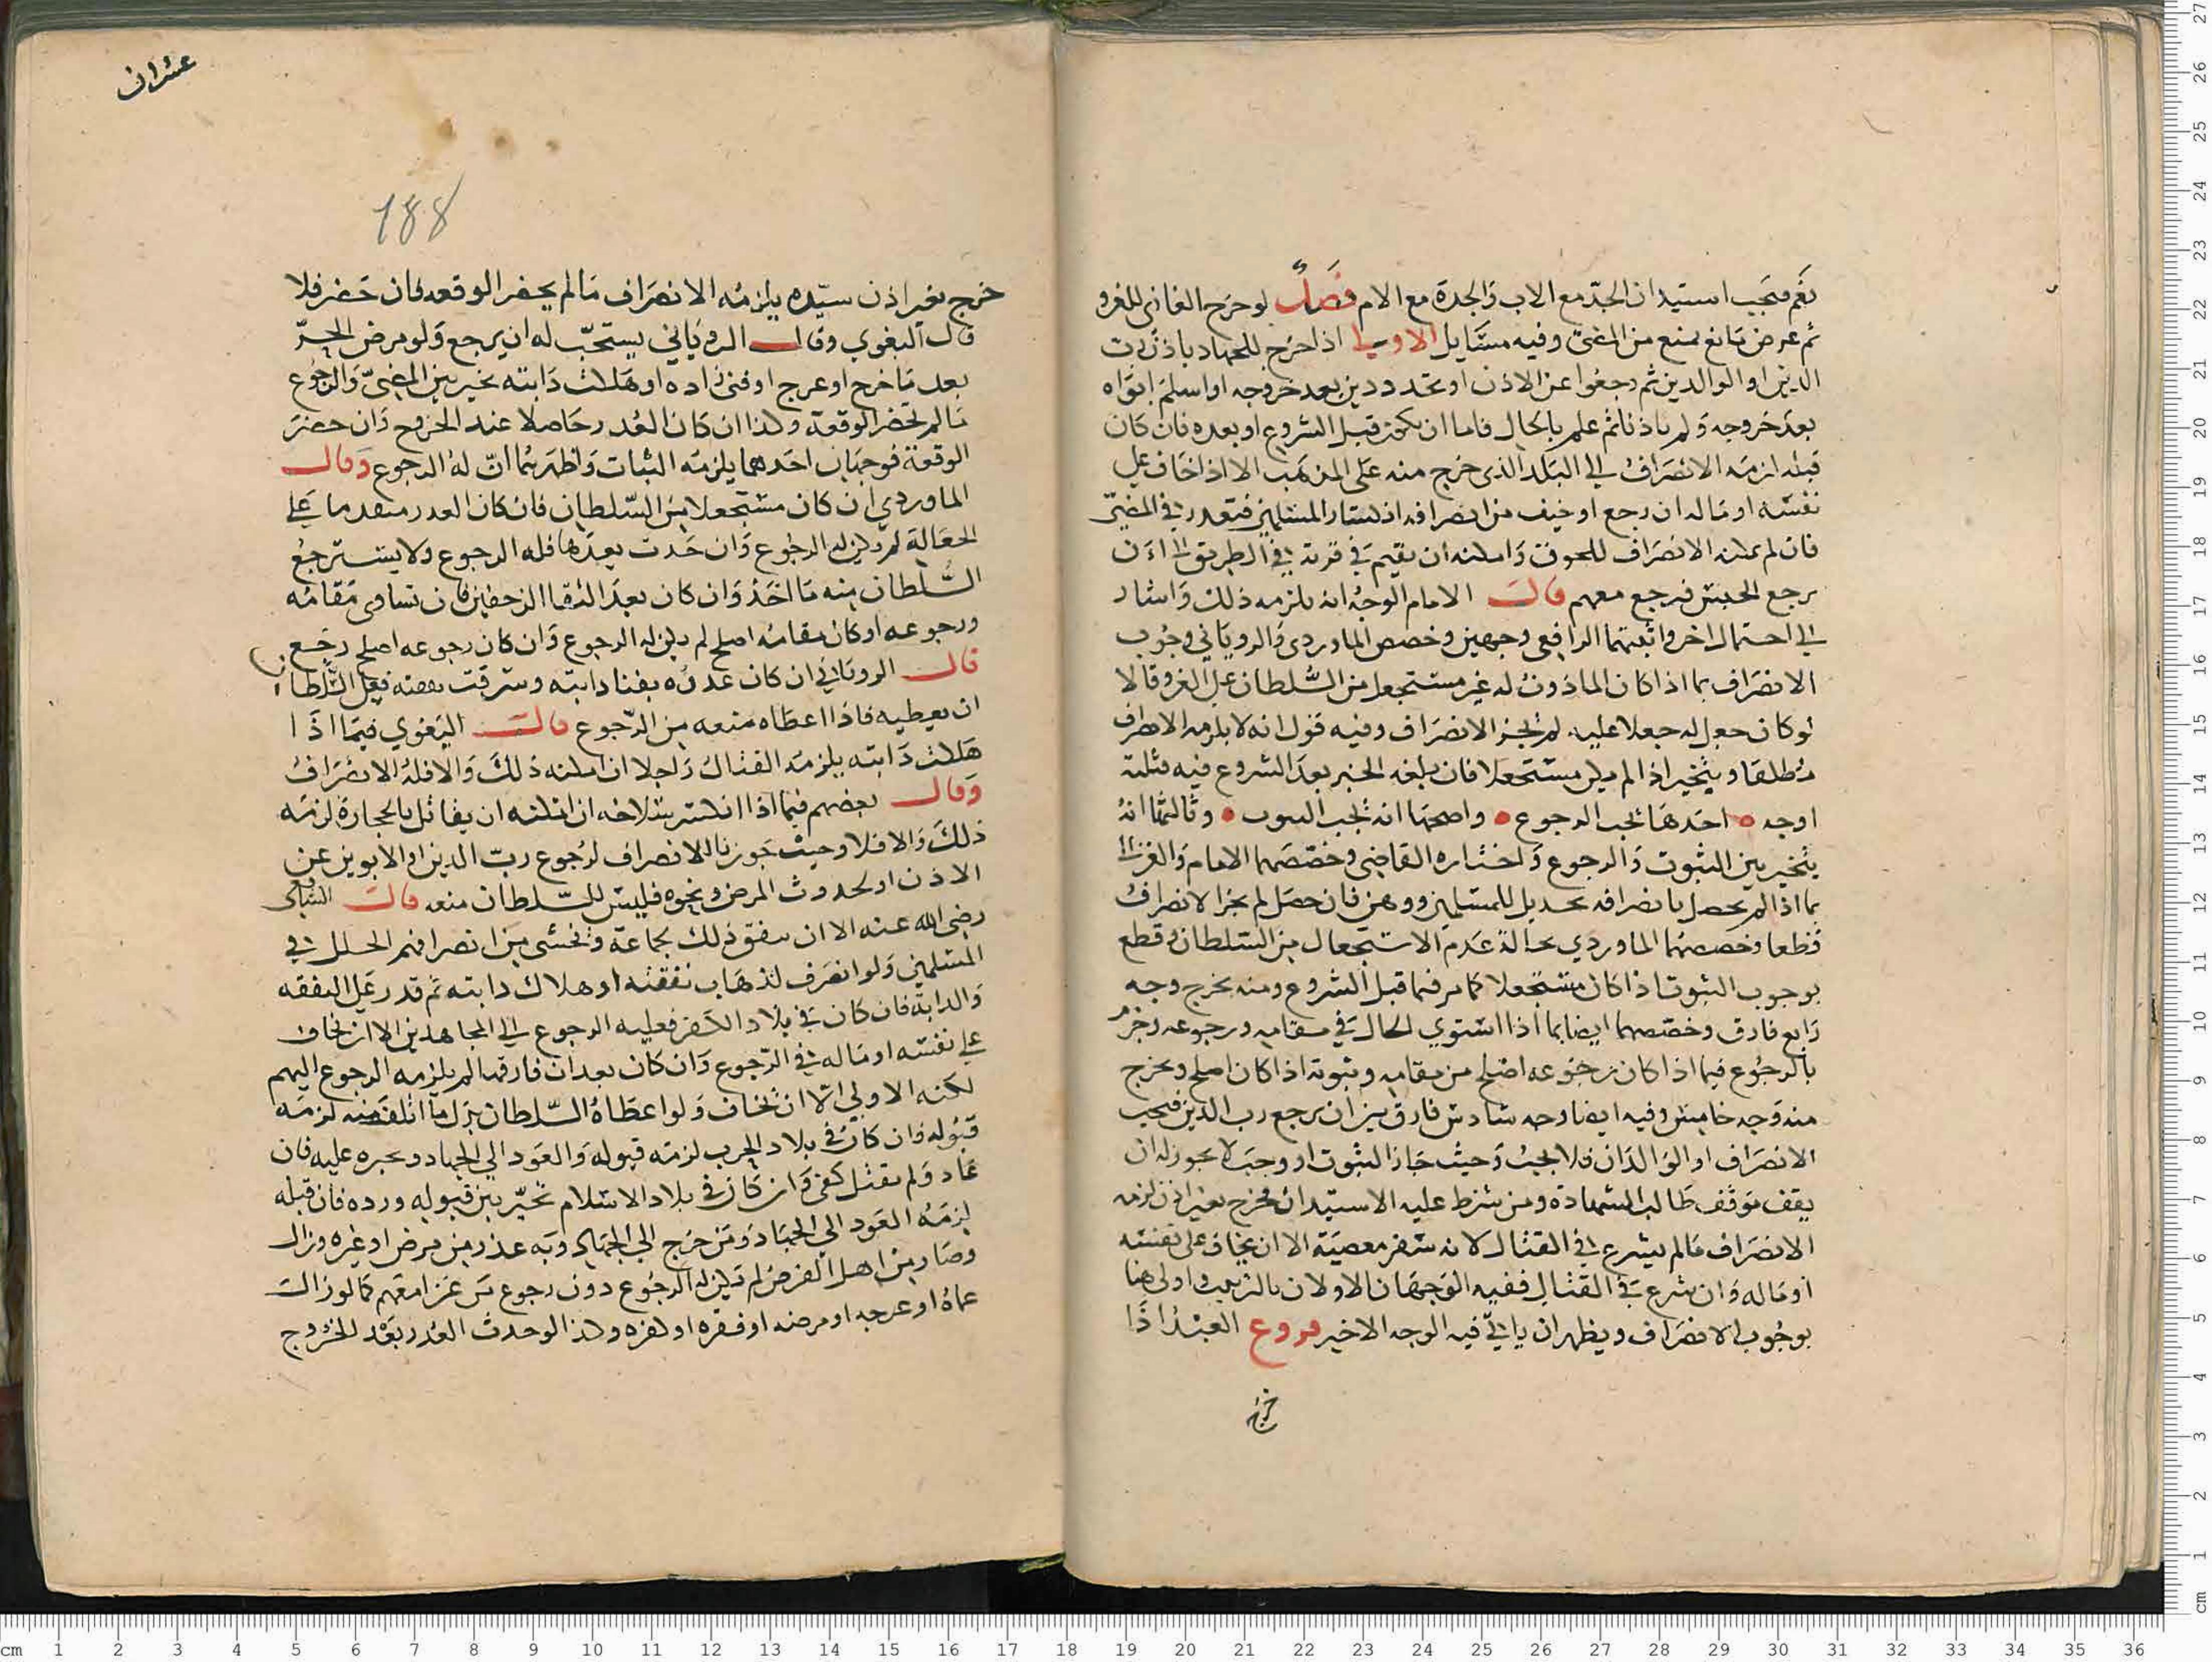 نعم فيجب استيذان الجد مع الاب والجدة مع الام فصل لو خرج الغازي للغزو
ثم عرض مانع يمنع من المضي وفيه مسايل الاولى اذا خرج للجهاد باذن رب
الدين او الوالدين ثم رجعوا عن الاذن او تجدد دين بعد خروجه او اسلم ابواه
بعد خروجه ولم ياذنا ثم علم بالحال فاما ان يكون قبل الشروع او بعده فان كان
قبله لزمه الانصراف الى البلد الذي خرج منه على المذهب الا اذا خاف على
نفسه او ماله ان رجع او خيف من انصرافه انكسار المسلمين فيتعذر في المضي
فان لم يمكنه الانصراف للخوف وامكنه ان يقيم في قرية في الطريق الى ان
يرجع الجيش فيرجع معهم قال الامام الوجه انه يلزمه ذلك واشار
الى احتمال اخر واثبتهما الرافعي وجهين وخصص الماوردي والروياني وجوب
الانصراف بما اذا كان الماذون له غير مستجعل من السلطان على الغزو قالا
لو كان جعل له جعلا عليه لم يجز الانصراف وفيه قول انه لا يلزمه الانصراف
مطلقا ويتخير اذا لم يكن مستجعلا فان بلغه الخبر بعد الشروع فيه فثلثة
اوجه احدها يجب الرجوع واصحها انه يجب الثبوت وثالثها انه
يتخير بين الثبوت والرجوع واختاره القاضي وخصصهما الامام والغزالي
بما اذا لم يحصل بانصرافه تخذيل للمسلمين ووهن فان حصل لم يجز الانصراف
قطعا وخصصهما الماوردي بحالة عدم الاستجعال من السلطان وقطع
بوجوب الثبوت اذا كان مستجعلا كما مر فيما قبل الشروع ومنه يخرج وجه
رابع فارق وخصصهما ايضا بما اذا استوى الحال في مقامه ورجوعه وجزم
بالرجوع فيما اذا كان رجوعه اصلح من مقامه وثبوته اذا كان اصلح ويخرج
منه وجه خامس وفيه ايضا وجه سادس فارق بين ان يرجع رب الدين فيجب
الانصراف او الوالدان فلا يجب وحيث جاز الثبوت او وجب لا يجوز له ان
يقف موقف طالب الشهادة ومن شرط عليه الاستيذان فخرج بغير اذن لزمه
الانصراف ما لم يشرع في القتال لانه سفر معصية الا ان يخاف على نفسه
او ماله وان شرع في القتال ففيه الوجهان الاولان بالترتيب واولى هنا
بوجوب الانصراف ويظهر ان ياتي فيه الوجه الاخير فروع العبد اذا
خرج
عشران
188
خرج بغير اذن سيده يلزمه الانصراف ما لم يحضر الوقعه فان حضر فلا
قال البغوي وقال الروياني يستحب له ان يرجع ولو مرض الحر
بعد ما خرج او عرج او فنى زاده او هلكت دابته تخير بين المضي والرجوع
ما لم تحضر الوقعة وكذا ان كان العذر حاصلا عند الخروج وان حضر
الوقعة فوجهان احدهما يلزمه الثبات واظهرهما ان له الرجوع وقال
الماوردي ان كان مستجعلا من السلطان فان كان العذر متقدما على
الجعالة لم يكن له الرجوع وان حدث بعدها فله الرجوع ولا يسترجع
السلطان منه ما اخذ وان كان بعد التقا الزحفين فان تساوى مقامه
ورجوعه او كان مقامه اصلح لم يكن له الرجوع وان كان رجوعه اصلح رجع
قال الروياني ان كان عذره بفنا دابته وسرقت نفقته فعلى السلطان
ان يعطيه فاذا اعطاه منعه من الرجوع قال البغوي فيما اذا
هلكت دابته يلزمه القتال راجلا ان امكنه ذلك والا فله الانصراف
وقال بعضهم فيما اذا انكسر سلاحه ان امكنه ان يقاتل بالحجارة لزمه
ذلك والا فلا وحيث جوزنا الانصراف لرجوع رب الدين او الابوين عن
الاذن او لحدوث المرض ونحوه فليس للسلطان منعه قال الشافعي
رضي الله عنه الا ان يتفق ذلك لجماعة ويخشى من انصرافهم الخلل في
المسلمين ولو انصرف لذهاب نفقته او هلاك دابته ثم قدر على النفقه
والدابة فان كان في بلاد الكفر فعليه الرجوع الى المجاهدين الا ان يخاف
على نفسه او ماله في الرجوع وان كان بعد ان فارقها لم يلزمه الرجوع اليهم
لكنه الاولى الا ان يخاف ولو اعطاه السلطان بدل ما اتلف منه لزمه
قبوله فان كان في بلاد الحرب لزمه قبوله والعود الى الجهاد ويجبره عليه فان
عاد ولم يقتل كفى وان كان في بلاد الاسلام تخير بين قبوله ورده فان قبله
لزمه العود الى الجهاد ومن خرج الى الجهاد وبه عذر من مرض او غيره وزال
وصار من اهل الفرض لم يكن له الرجوع دون رجوع من غزا معهم كما لو زال
عماه او عرجه او مرضه او فقره او كفره وكذا لو حدث العذر بعد الخروج